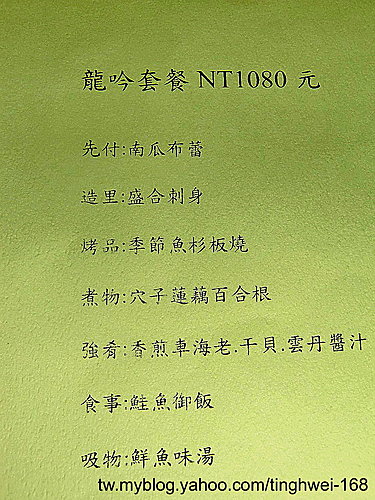 龍吟套餐 NT1080 元
先付:南瓜布蕾
造里:盛合刺身
烤品:季節魚杉板燒
煮物:穴子蓮藕百合根
強肴:香煎車海老.干貝.雲丹醬汁
食事:鮭魚御飯
吸物:鮮魚味湯
tw.myblog.yahoo.com/tinghwei-168